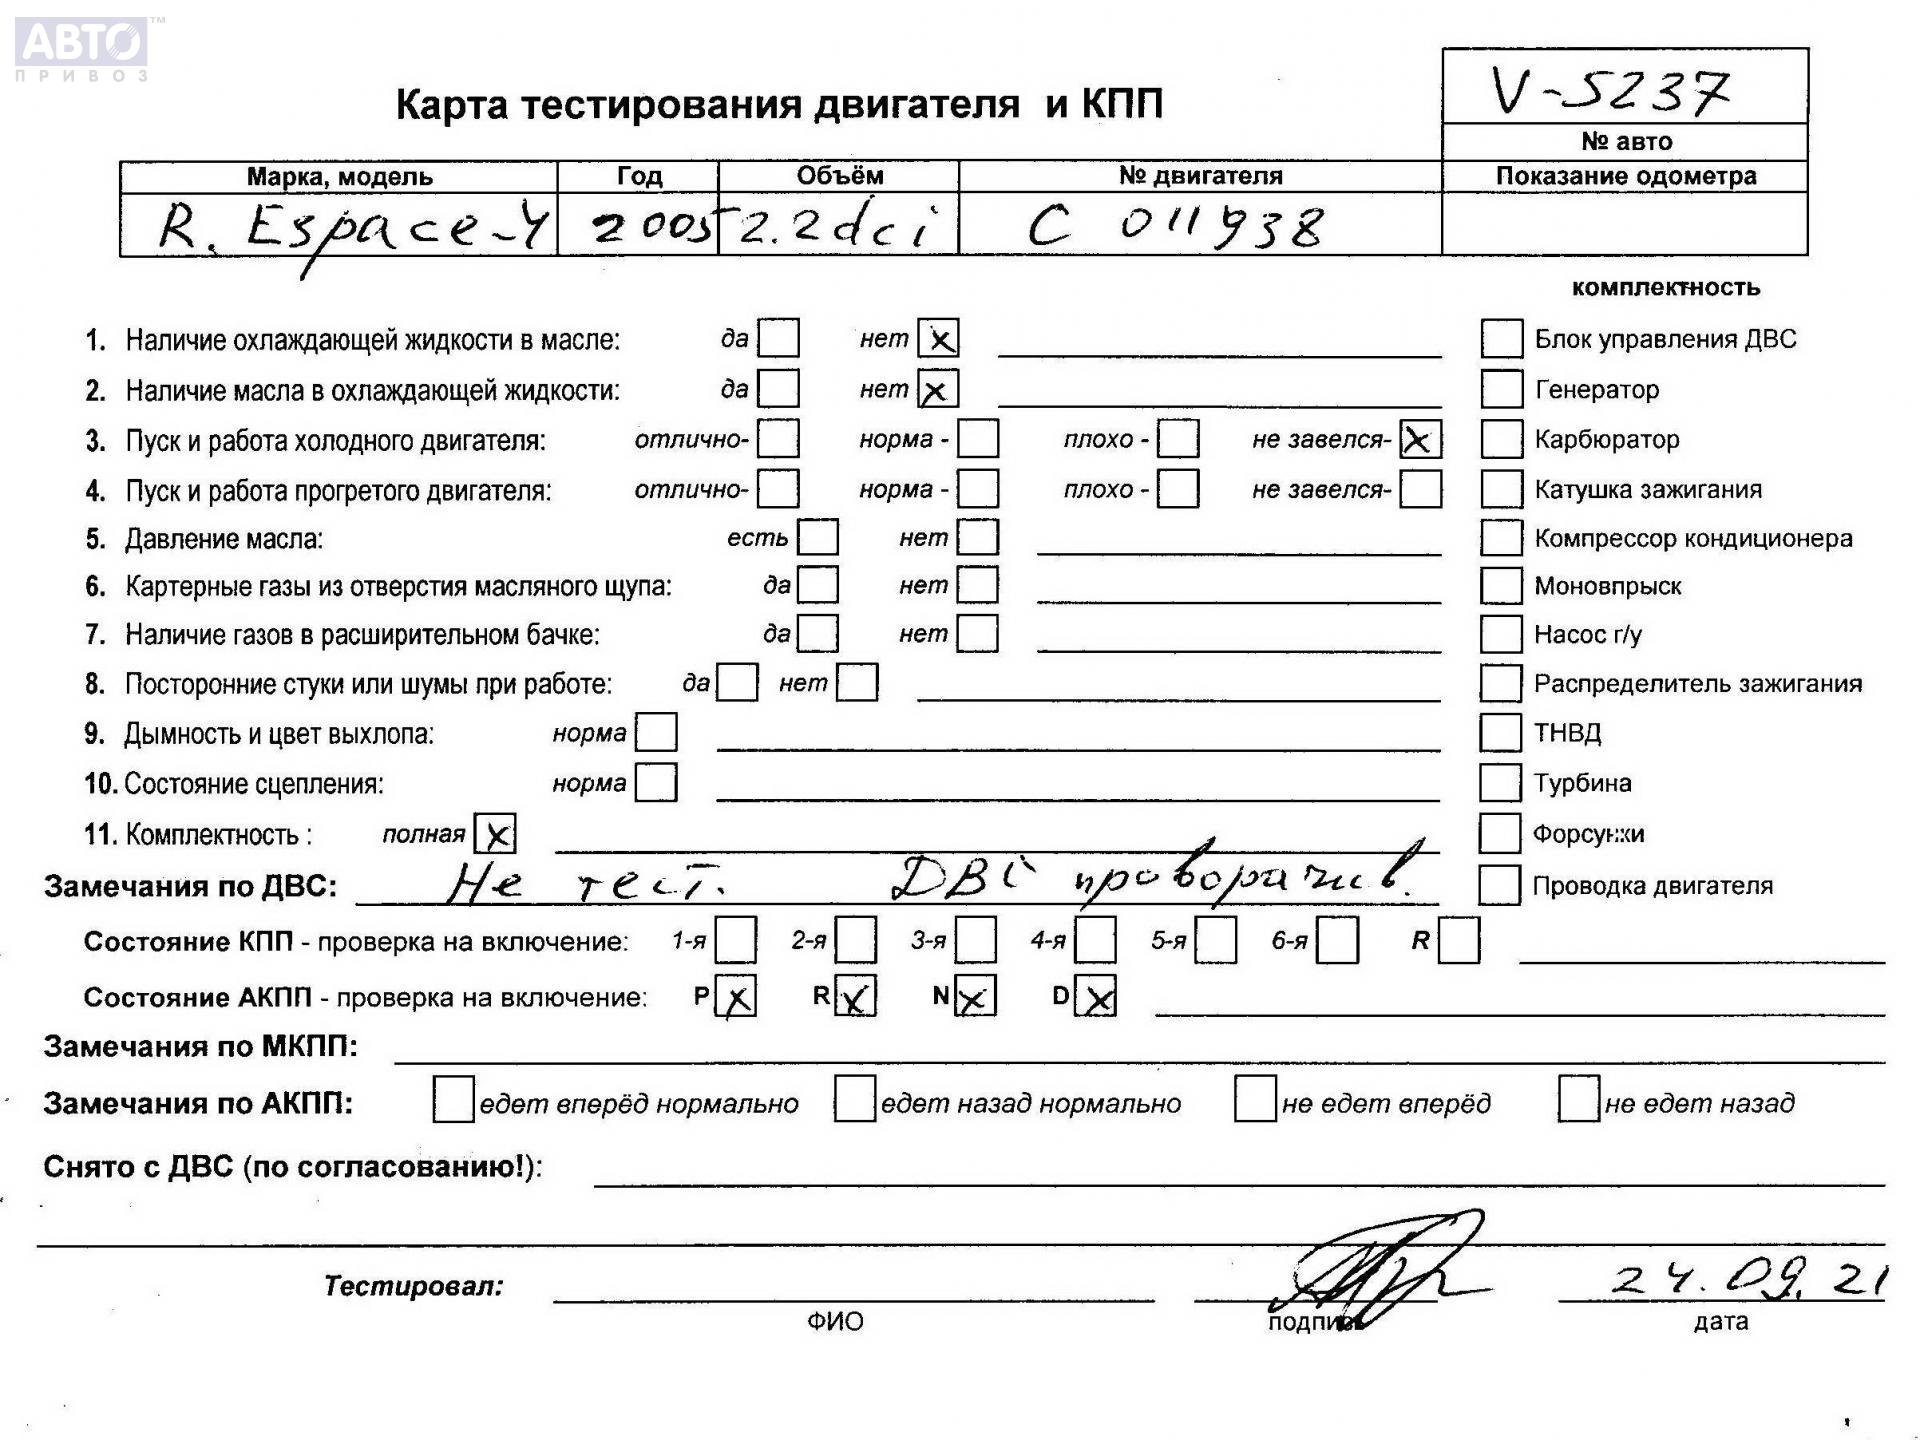 АВТО™
ПРИВОЗ
V-5237
Карта тестирования двигателя и КПП
№ авто
Марка, модель Год Объём № двигателя Показание одометра
R. Espace-4 2005 2.2dci C 011938
комплектность
1. Наличие охлаждающей жидкости в масле: да нет X Блок управления ДВС
2. Наличие масла в охлаждающей жидкости: да нет X Генератор
3. Пуск и работа холодного двигателя: отлично- норма - плохо - не завелся- X Карбюратор
4. Пуск и работа прогретого двигателя: отлично- норма - плохо - не завелся- Катушка зажигания
5. Давление масла: есть нет Компрессор кондиционера
6. Картерные газы из отверстия масляного щупа: да нет Моновпрыск
7. Наличие газов в расширительном бачке: да нет Насос г/у
8. Посторонние стуки или шумы при работе: да нет Распределитель зажигания
9. Дымность и цвет выхлопа: норма ТНВД
10. Состояние сцепления: норма Турбина
11. Комплектность : полная X Форсунки
Замечания по ДВС: Не тест. ДВС проворачив. Проводка двигателя
Состояние КПП - проверка на включение: 1-я 2-я 3-я 4-я 5-я 6-я R
Состояние АКПП - проверка на включение: P X R X N X D X
Замечания по МКПП:
Замечания по АКПП: едет вперёд нормально едет назад нормально не едет вперёд не едет назад
Снято с ДВС (по согласованию!):
Тестировал: 24.09.21
ФИО подпись дата